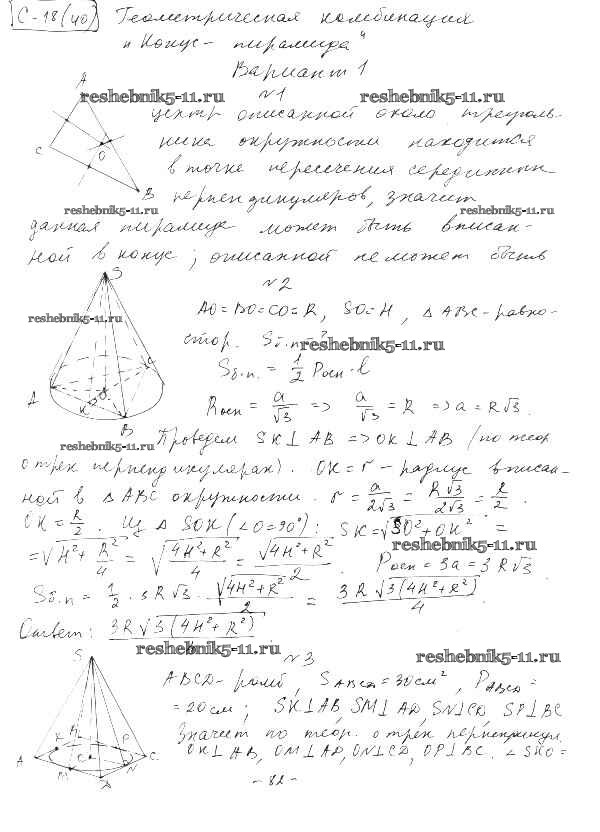 С-18(40) Геометрическая комбинация
"Конус-пирамида"
Вариант 1
A
reshebnik5-11.ru №1 reshebnik5-11.ru
центр описанной около треуголь-
C O ника окружности находится
в точке пересечения серединн.
B перпендикуляров, значит
reshebnik5-11.ru reshebnik5-11.ru
данная пирамида может быть вписан-
ной в конус; описанной не может быть
S №2
AO=BO=CO=R, SO=H, △ABC-равно-
reshebnik5-11.ru
стор. Sб.п.-? reshebnik5-11.ru
Sб.п. = 1/2 Pосн·l
A K O C B
Rосн = a/√3 => a/√3 = R => a = R√3.
reshebnik5-11.ru Проведем SK⊥AB => OK⊥AB (по теор
о трех перпендикулярах). OK=r - радиус вписан-
ной в △ABC окружности. r = a/2√3 = R√3/2√3 = R/2.
OK = R/2. Из △SOK (∠O=90°): SK=√SO²+OK² =
=√H²+R²/4 = √(4H²+R²)/4 = √4H²+R²/2 reshebnik5-11.ru
Pосн = 3a = 3R√3
Sб.п = 1/2 · 3R√3 · √4H²+R²/2 = 3R√3(4H²+R²)/4
Ответ: 3R√3(4H²+R²)/4
reshebnik5-11.ru №3 reshebnik5-11.ru
S ABCD-ромб, SABCD=30см², PABCD=
=20см; SK⊥AB, SM⊥AD, SN⊥CD, SP⊥BC
Значит по теор. о трех перпендикул.
A K P C M N OK⊥AB, OM⊥AD, ON⊥CD, OP⊥BC. ∠SKO=
- 82 -